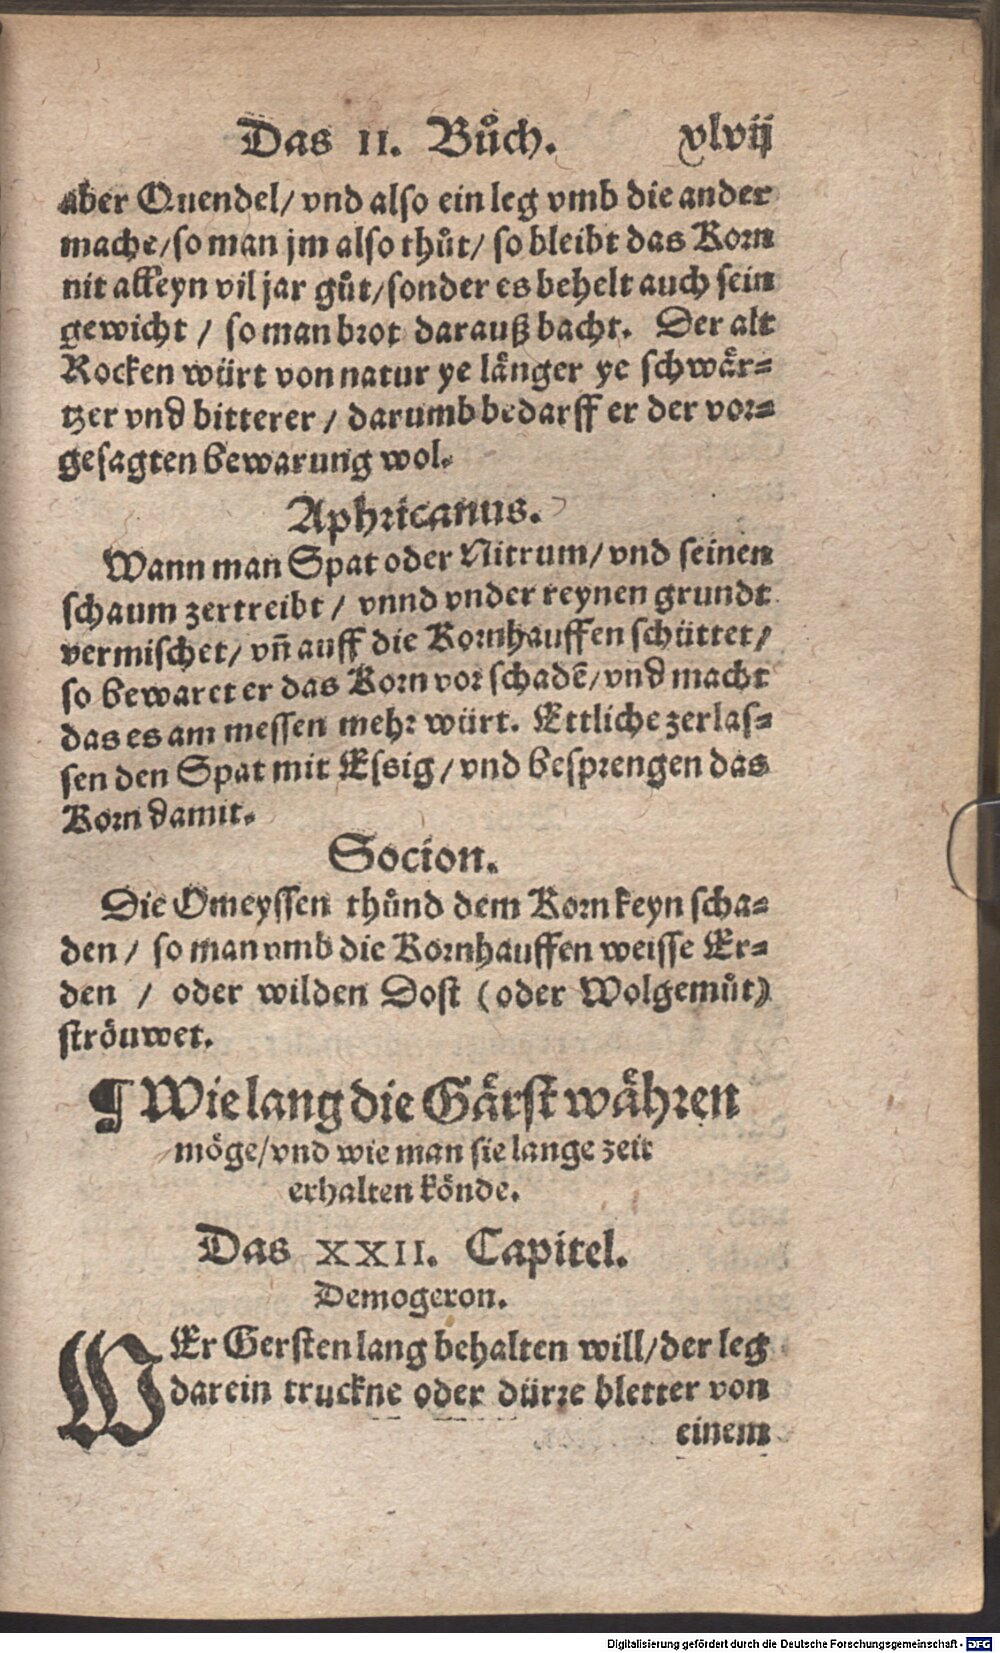 Das II. Bůch. xlvij
aber Quendel/ vnd also ein leg vmb die ander
mache/so man jm also thůt/ so bleibt das Korn
nit alleyn vil jar gůt/sonder es behelt auch sein
gewicht / so man brot darauß bacht. Der alt
Rocken würt von natur ye långer ye schwår⸗
tzer vnd bitterer / darumb bedarff er der vor⸗
gesagten bewarung wol.
Aphricanus.
Wann man Spat oder Nitrum/ vnd seinen
schaum zertreibt / vnnd vnder reynen grundt
vermischet/ vñ auff die Kornhauffen schüttet/
so bewaret er das Korn vor schadẽ/ vnd macht
das es am messen mehr würt. Ettliche zerlas⸗
sen den Spat mit Essig / vnd besprengen das
Korn damit.
Socion.
Die Omeyssen thůnd dem Korn keyn scha⸗
den / so man vmb die Kornhauffen weisse Er⸗
den / oder wilden Dost (oder Wolgemůt)
ströuwet.
¶ Wie lang die Gårst währen
möge/vnd wie man sie lange zeit
erhalten könde.
Das XXII. Capitel.
Demogeron.
WEr Gersten lang behalten will/der leg
darein truckne oder dürre bletter von
einem
Digitalisierung gefördert durch die Deutsche Forschungsgemeinschaft - DFG